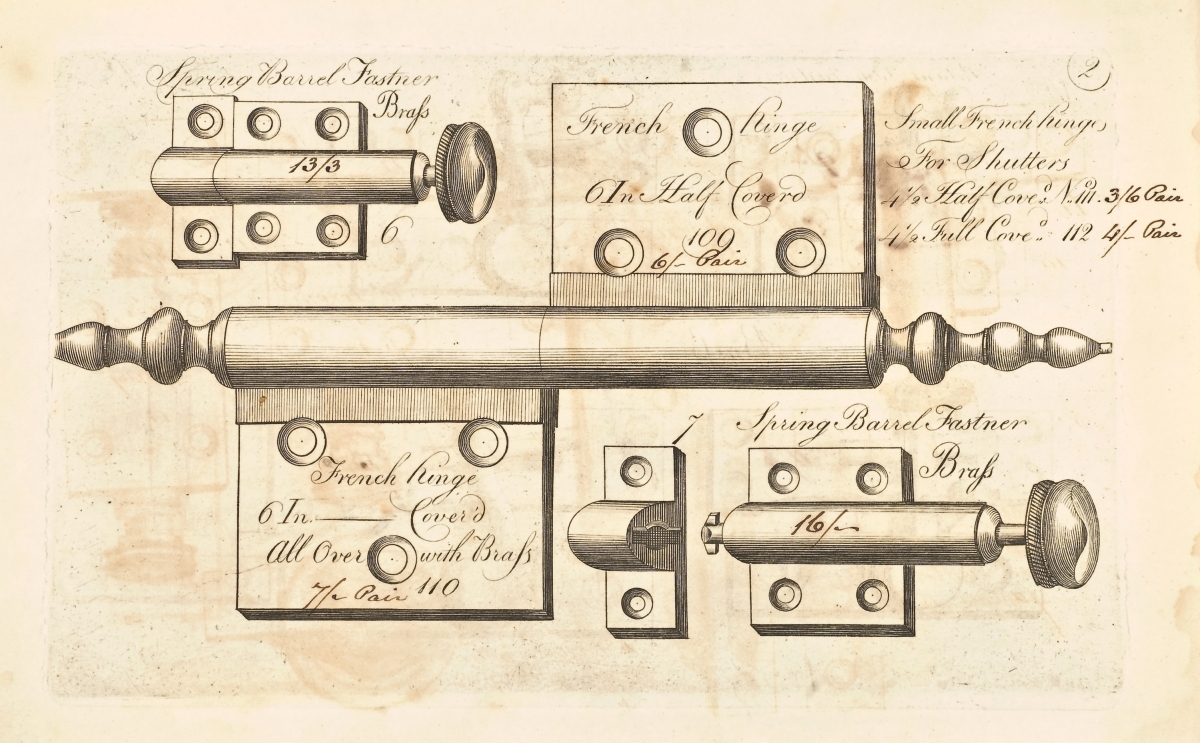 2
Spring Barrel Fastner
Braſs
13/3
6
French Hinge
6 In Half Cover'd
109
6/- Pair
Small French Hinge,
For Shutters
4½ Half Cove.d N. 111. 3/6 Pair
4½ Full Cove.d 112 4/- Pair
French Hinge
6 In. —— Cover'd
All Over with Braſs
7/- Pair 110
7
Spring Barrel Fastner
Braſs
16/-